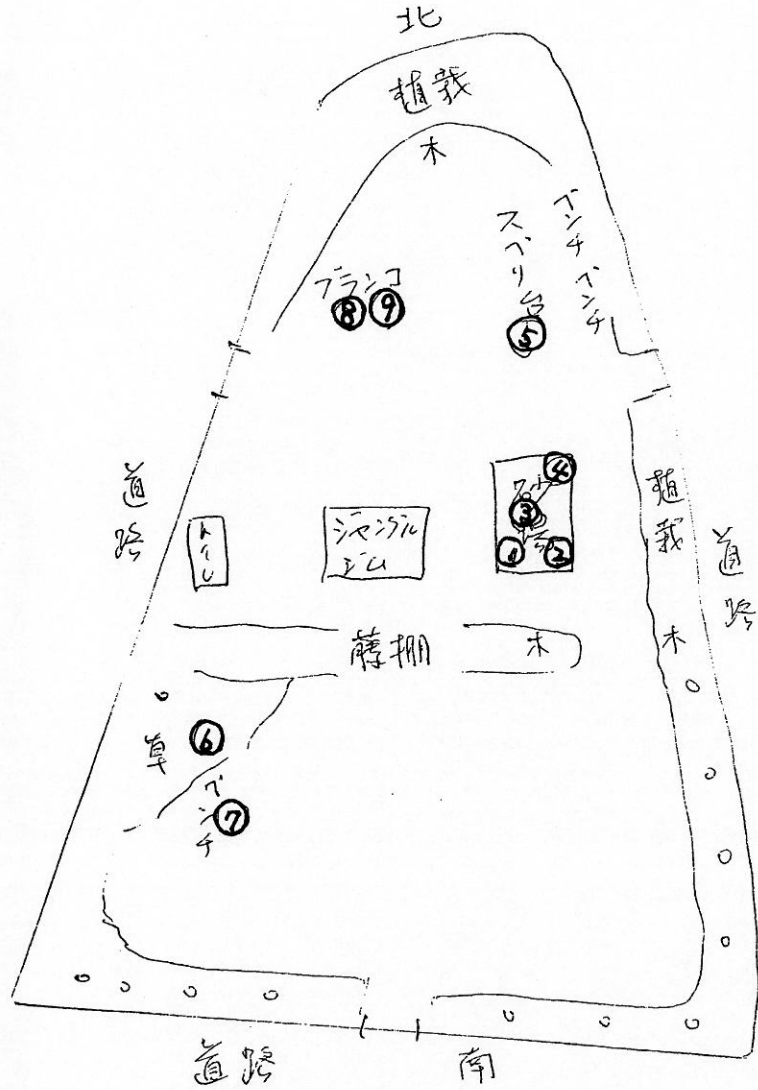 北
植栽
木
ブランコ
⑧⑨
スベリ台
⑤
ベンチ
ベンチ
道路
トイレ
ジャングル
ジム
④
③
①
②
植栽
道路
藤棚
木
木
草
⑥
ベンチ
⑦
道路
南